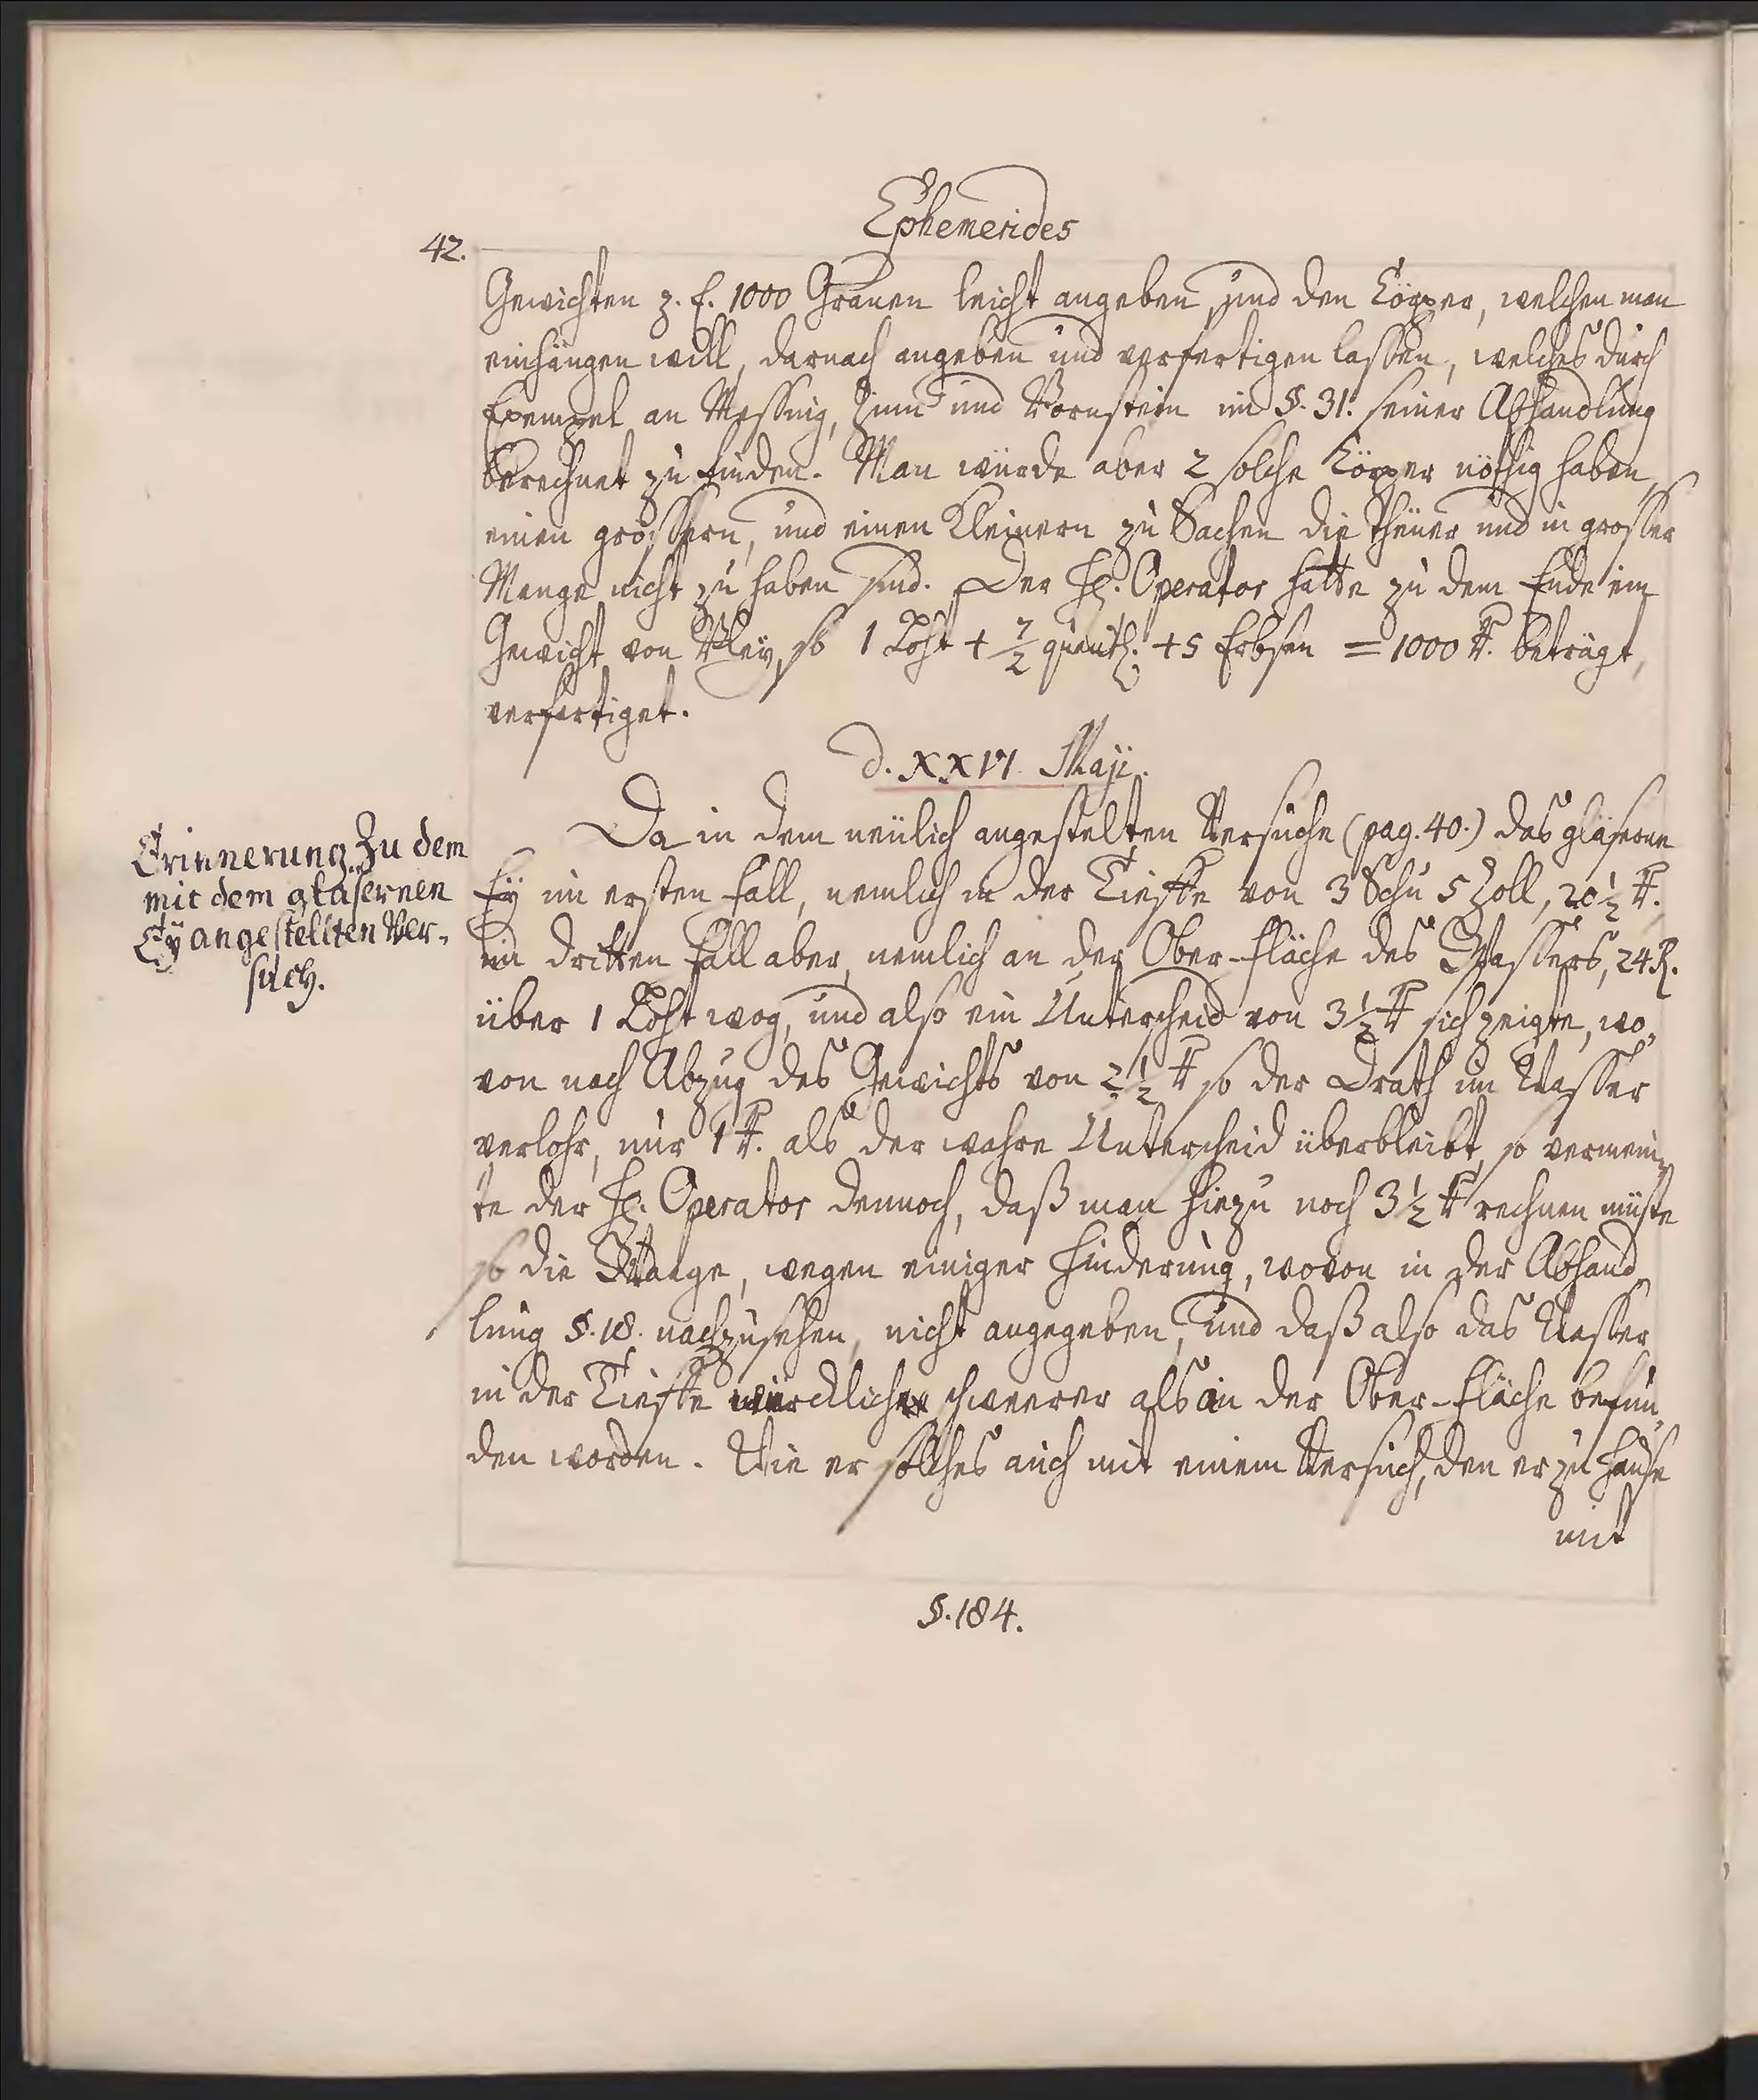 Ephemerides
42.
Gewichten z. E. 1000 Granen leicht angeben, und den Cörper, welchen man
einhängen will, darnach angeben und verfertigen lassen, welches durch
Exempel an Messing, Zinn und Bornstein im §. 31. seiner Abhandlung
berechnet zu finden. Man würde aber 2 solche Cörper nöthig haben,
einen grössern, und einen Kleinern zu Sachen die theuer und in grosser
Menge nicht zu haben sind. Der H. Operator hatte zu dem Ende ein
Gewicht von Bley, so 1 Loht + 7/2 quentl. + 5 Erbsen = 1000 gr. beträgt,
verfertiget.
d. XXVI. Maji.
Erinnerung zu dem
mit dem gläsernen
Ey angestellten Ver-
such.
Da in dem neülich angestelten Versuche (pag. 40.) das gläserne
Ey im ersten Fall, nemlich in der Tieffe von 3 Schu 5 Zoll, 20 ½ gr.
im dritten Fall aber, nemlich an der Ober-Fläche des Wassers, 24 gr.
über 1 Loht wog, und also ein Unterscheid von 3 ½ gr sich zeigte, wo-
von nach Abzug des Gewichts von 2 ½ gr so der Drath im Wasser
verlohr, nur 1 gr. als der wahre Unterscheid überbleibt, so vermein-
te der H. Operator dennoch, daß man hiezu noch 3 ½ gr rechnen müste
so die Waage, wegen einiger Hinderung, wovon in der Abhand-
lung §. 18. nachzusehen, nicht angegeben, und daß also das Wasser
in der Tieffe würcklich schwerer als an der Ober-Fläche befun-
den worden. Wie er solches auch mit einem Versuch, den er zu Hause
mit
§. 184.